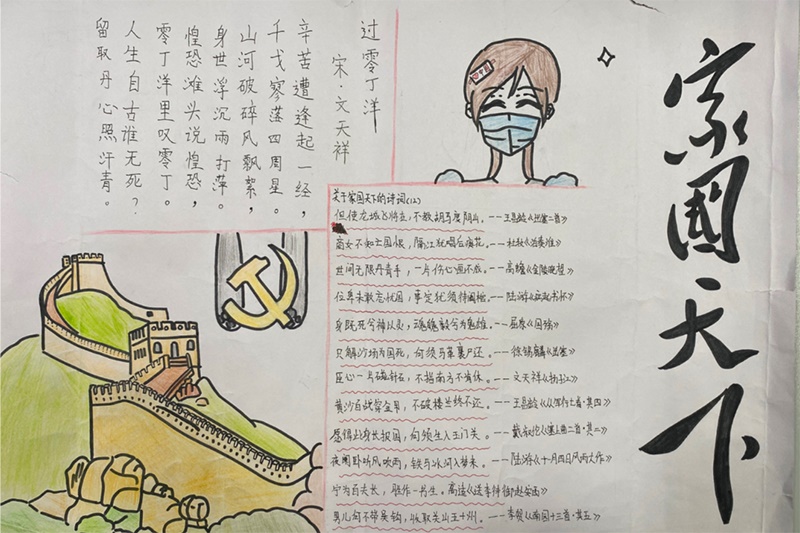 家国天下
过零丁洋
宋·文天祥
辛苦遭逢起一经，
干戈寥落四周星。
山河破碎风飘絮，
身世浮沉雨打萍。
惶恐滩头说惶恐，
零丁洋里叹零丁。
人生自古谁无死？
留取丹心照汗青。
关于家国天下的诗词(12)
但使龙城飞将在，不教胡马度阴山。——王昌龄《出塞二首》
商女不知亡国恨，隔江犹唱后庭花。——杜牧《泊秦淮》
世间无限丹青手，一片伤心画不成。——高蟾《金陵晚望》
位卑未敢忘忧国，事定犹须待阖棺。——陆游《病起书怀》
身既死兮神以灵，魂魄毅兮为鬼雄。——屈原《国殇》
只解沙场为国死，何须马革裹尸还。——徐锡麟《出塞》
臣心一片磁针石，不指南方不肯休。——文天祥《扬子江》
黄沙百战穿金甲，不破楼兰终不还。——王昌龄《从军行七首·其四》
愿得此身长报国，何须生入玉门关。——戴叔伦《塞上曲二首·其二》
夜阑卧听风吹雨，铁马冰河入梦来。——陆游《十一月四日风雨大作》
宁为百夫长，胜作一书生。高适《送李侍御赴安西》
男儿何不带吴钩，收取关山五十州。——李贺《南园十三首·其五》